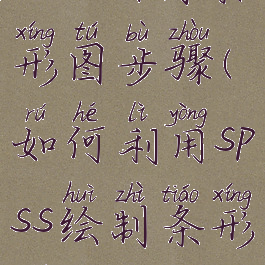 xíng tú bù zhòu
形图步骤(
rú hé lì yòng
如何利用SP
huì zhì tiáo xíng
SS绘制条形